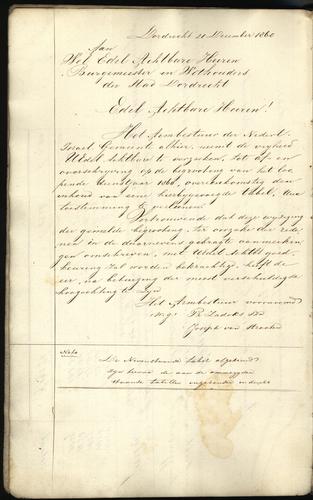 Dordrecht 21 December 1860
Aan
Wel Edel Achtbare Heeren
Burgemeester en Wethouders
der Stad Dordrecht
Edel Achtbare Heeren!
Het Armbestuur der Nederl.
Israel. Gemeente alhier, neemt de vryheid
UEdel Achtbare te verzoeken, tot af en
overschryving op de begrooting van het loo
pende dienstjaar 1860, overeenkomstig den
inhoud van eene hierbygevoegde Tabel, Uwe
toestemming te verleenen
Vertrouwende dat deze wyziging
der gemelde begrooting, ter oorzake der rede
nen in de daarnevens gebragte aanmerkin
gen omschreven, met UEdel Achtb goed
keuring zal worden bekrachtigd, heeft de
eer, na betuiging der meest verschuldigde
hoogachting te zyn
Het Armbestuur voornoemd
w.g. Ph. Zadoks
Joseph van
Nota
De Nevenstaande tabel afgeschreven
zyn
staande tabellen